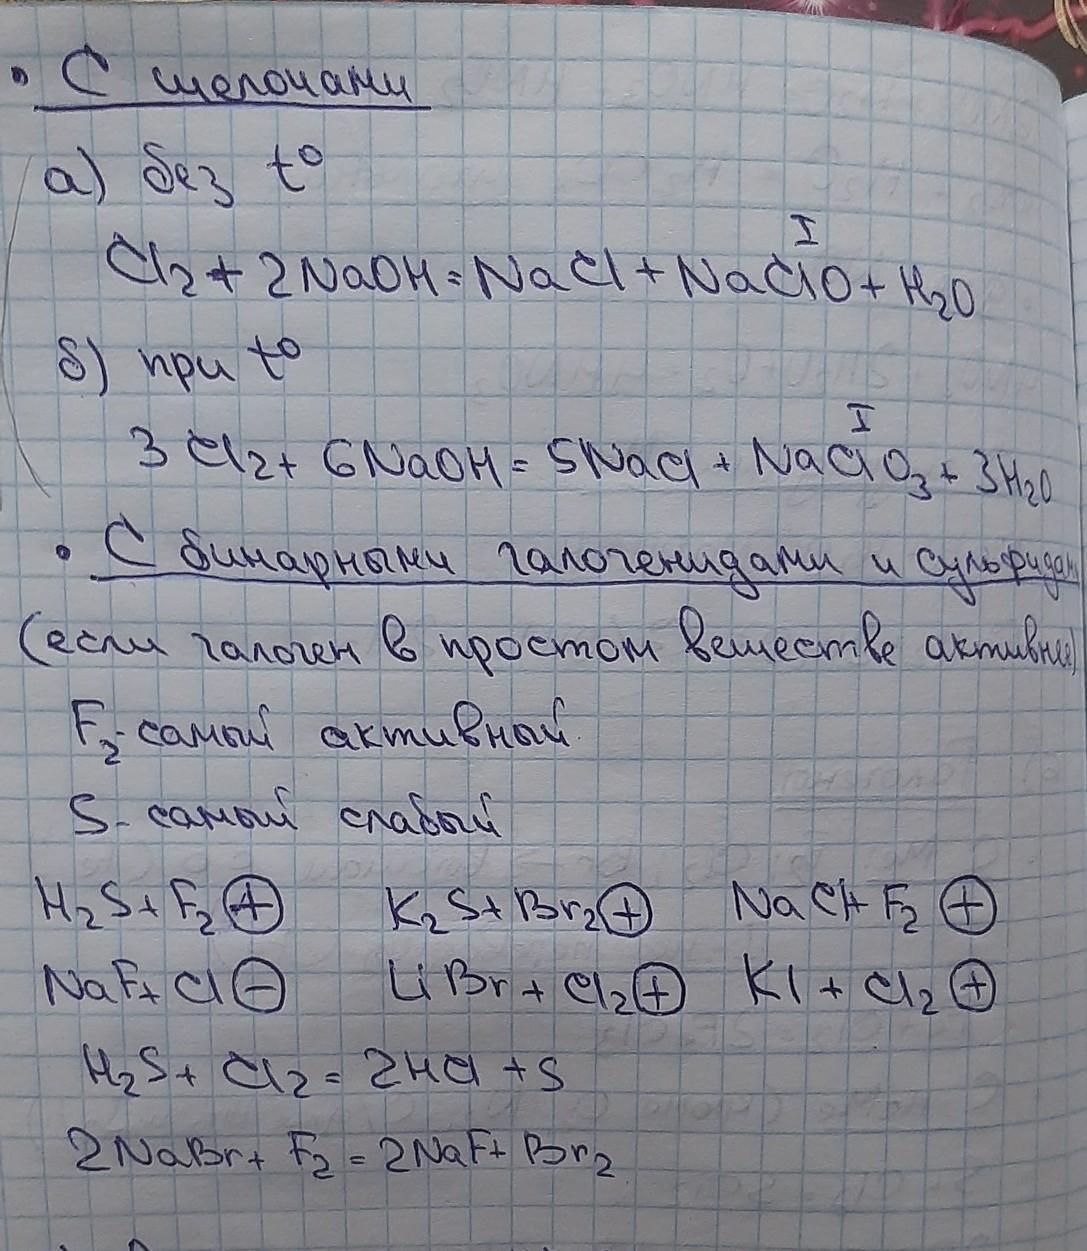 • С щелочами
а) без t°
I
Cl₂ + 2NaOH = NaCl + NaClO + H₂O
б) при t°
I
3Cl₂ + 6NaOH = 5NaCl + NaClO₃ + 3H₂O
• С бинарными галогенидами и сульфидами
(если галоген в простом веществе активнее)
F₂ - самый активный
S - самый слабый
H₂S + F₂ ⊕ K₂S + Br₂ ⊕ NaCl + F₂ ⊕
NaF + Cl ⊖ LiBr + Cl₂ ⊕ KI + Cl₂ ⊕
H₂S + Cl₂ = 2HCl + S
2NaBr + F₂ = 2NaF + Br₂